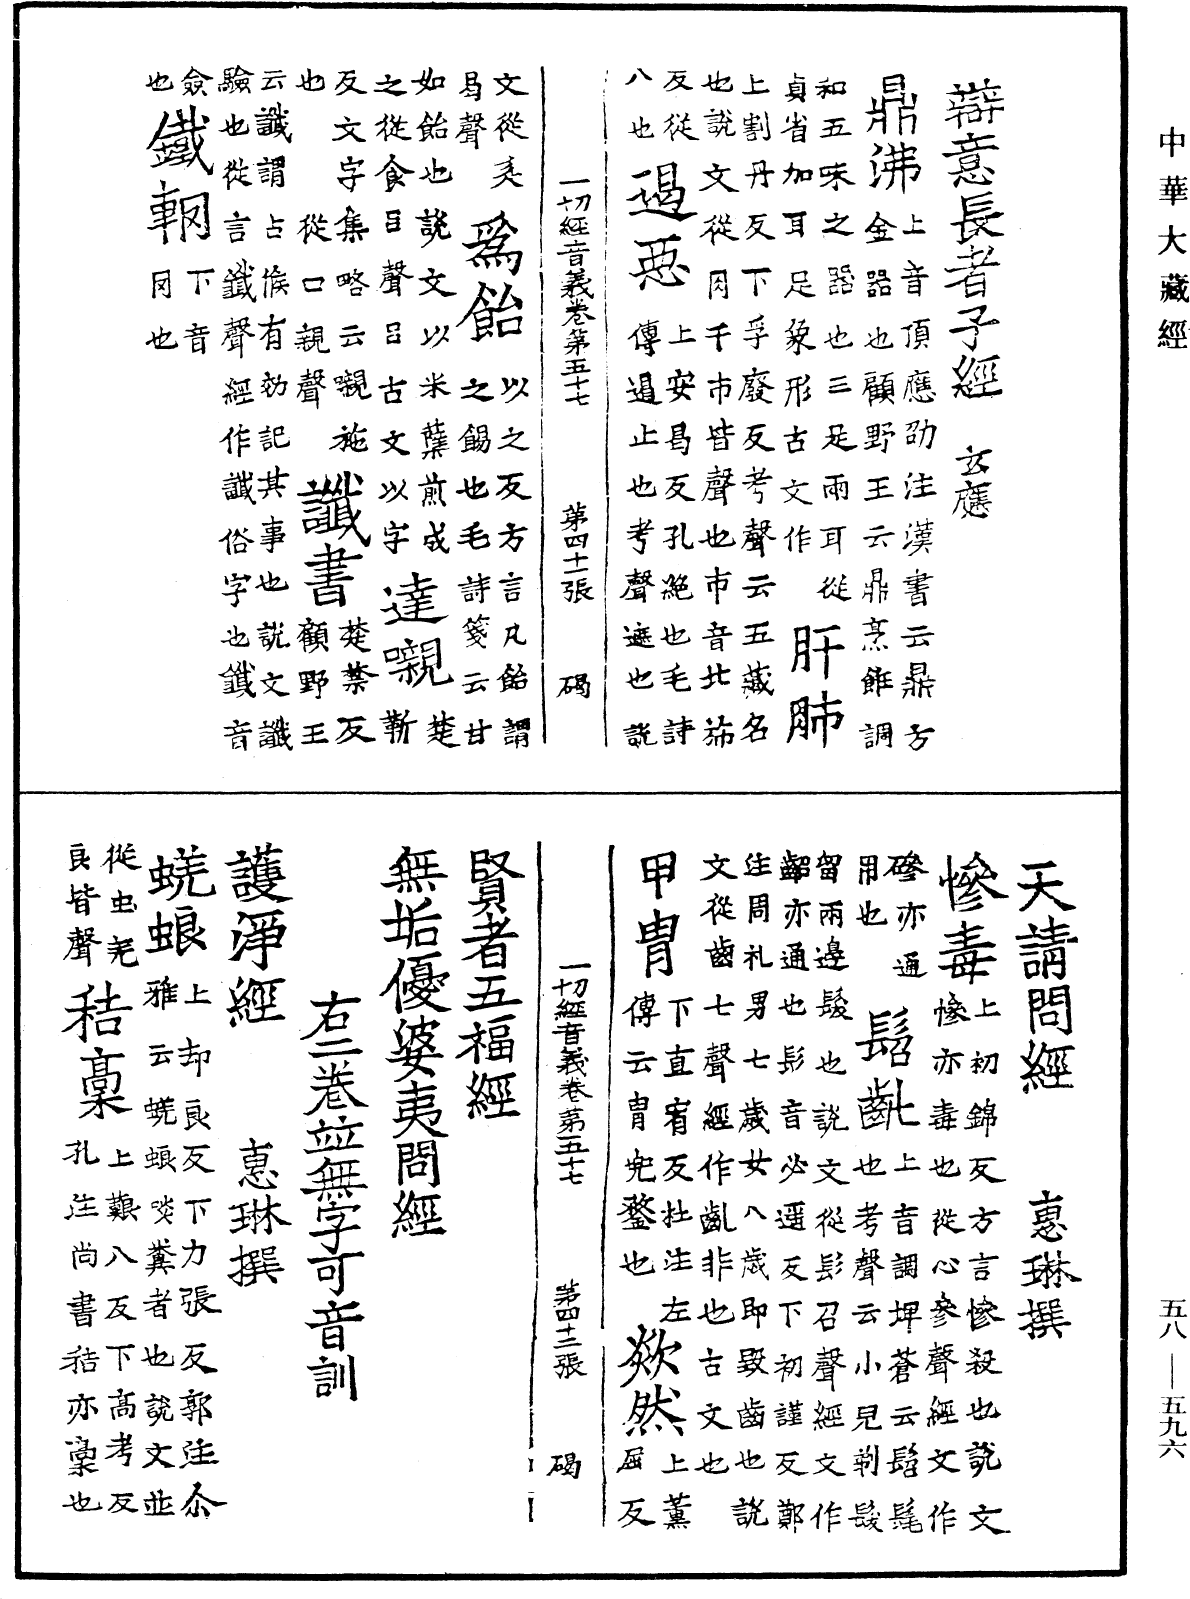 中華大藏經
五八—五九六
辯意長者子經 玄應
鼎沸 上音頂應劭注漢書云鼎方
金器也顧野王云鼎烹飪調
和五味之器也三足兩耳從
貞省加耳足象形古文作 肝肺
上割丹反下孚廢反考聲云五藏名
也說文從肉千市皆聲也市音北沛
反從八也 遏惡 上安曷反孔絶也毛詩
傳遏止也考聲遮也說
一切經音義卷第五十七 第四十二張 碣
文從辵曷聲 為飴 以之反方言凡飴謂
之餳也毛詩箋云甘
如飴也說文以米糱煎成
之從食㠯聲㠯古文以字 達嚫 楚靳
反文字集略云嚫施
也從口親聲 讖書 楚禁反顧野王
云讖謂占候有効記其事也說文讖
驗也從言韱聲經作讖俗字也韱音
僉也 鐵輞 下音罔也
天請問經 惠琳撰
慘毒 上初錦反方言慘殺也說文
慘亦毒也從心參聲經文作
磣亦通用也 髫齔 上音調埤蒼云髫髦
也考聲云小兒剃髮
留兩邊髮也說文從髟召聲經文作
齠亦通也髟音必遥反下初謹反鄭
注周礼男七歲女八歲即毀齒也說
文從齒七聲經作齓非也古文也
甲冑 下直宥反杜注左
傳云冑兜鍪也 欻然 上薰屈反
一切經音義卷第五十七 第四十三張 碣
賢者五福經
無垢優婆夷問經
右二卷並無字可音訓
護淨經 惠琳撰
蜣蜋 上却良反下力張反郭注尒
雅云蜣蜋啖糞者也說文並
從虫羌良皆聲 秸稾 上䶍八反下高考反
孔注尚書秸亦稾也